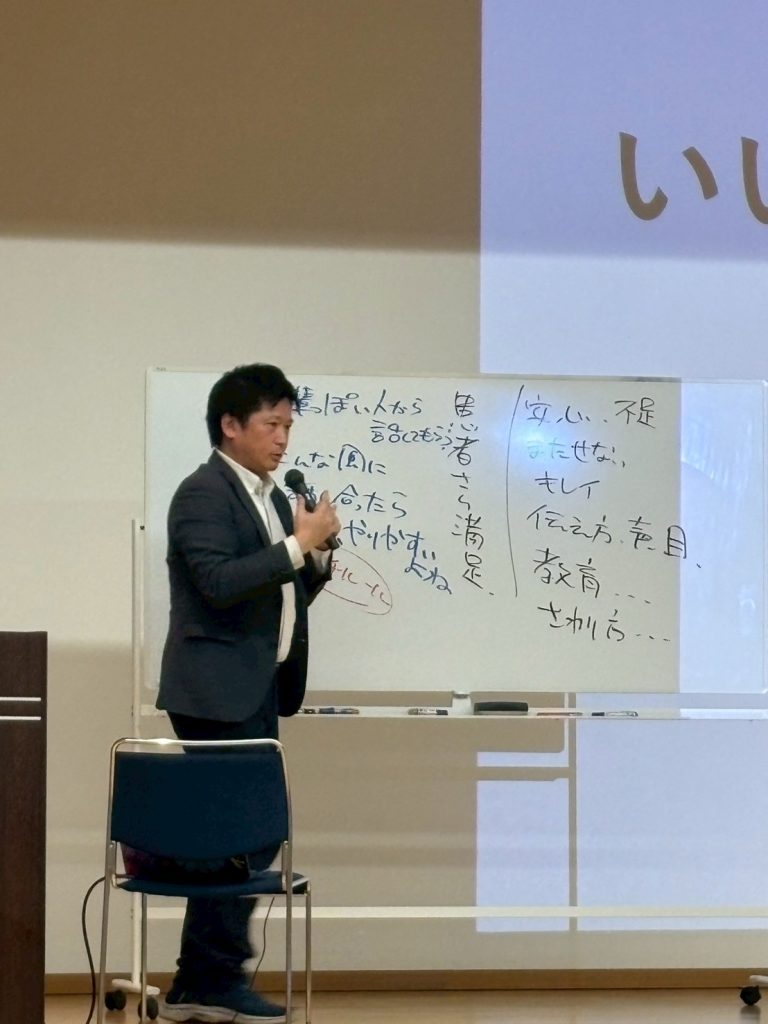 いい
っぽい人から
話してもらう
んな風に
合ったら
やりやすい
よね
患者さん満足
安心、不足
またせない
キレイ
伝え方、声、目、
教育...
さわり方...